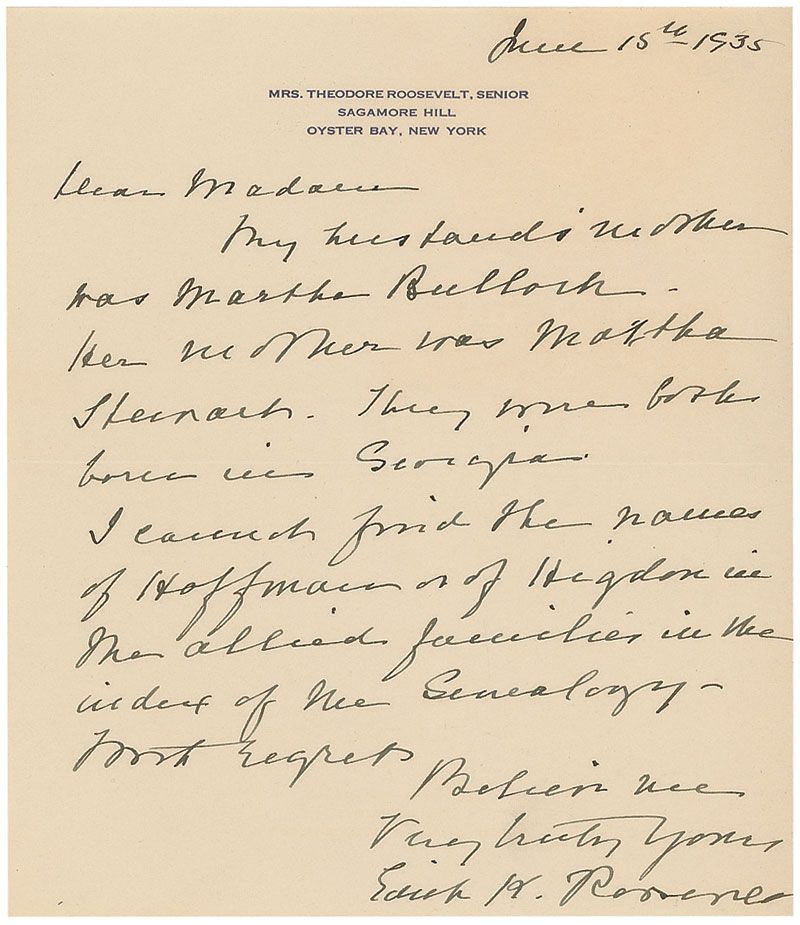 June 15th 1935
MRS. THEODORE ROOSEVELT, SENIOR
SAGAMORE HILL
OYSTER BAY, NEW YORK
Dear Madam
My husband's mother
was Martha Bulloch -
Her mother was Martha
Stewart. They were both
born in Georgia.
I cannot find the names
of Hoffman or of Higdon in
the allied families in the
index of the Genealogy -
With regrets
Believe me
Very truly yours
Edith K. Roosevelt